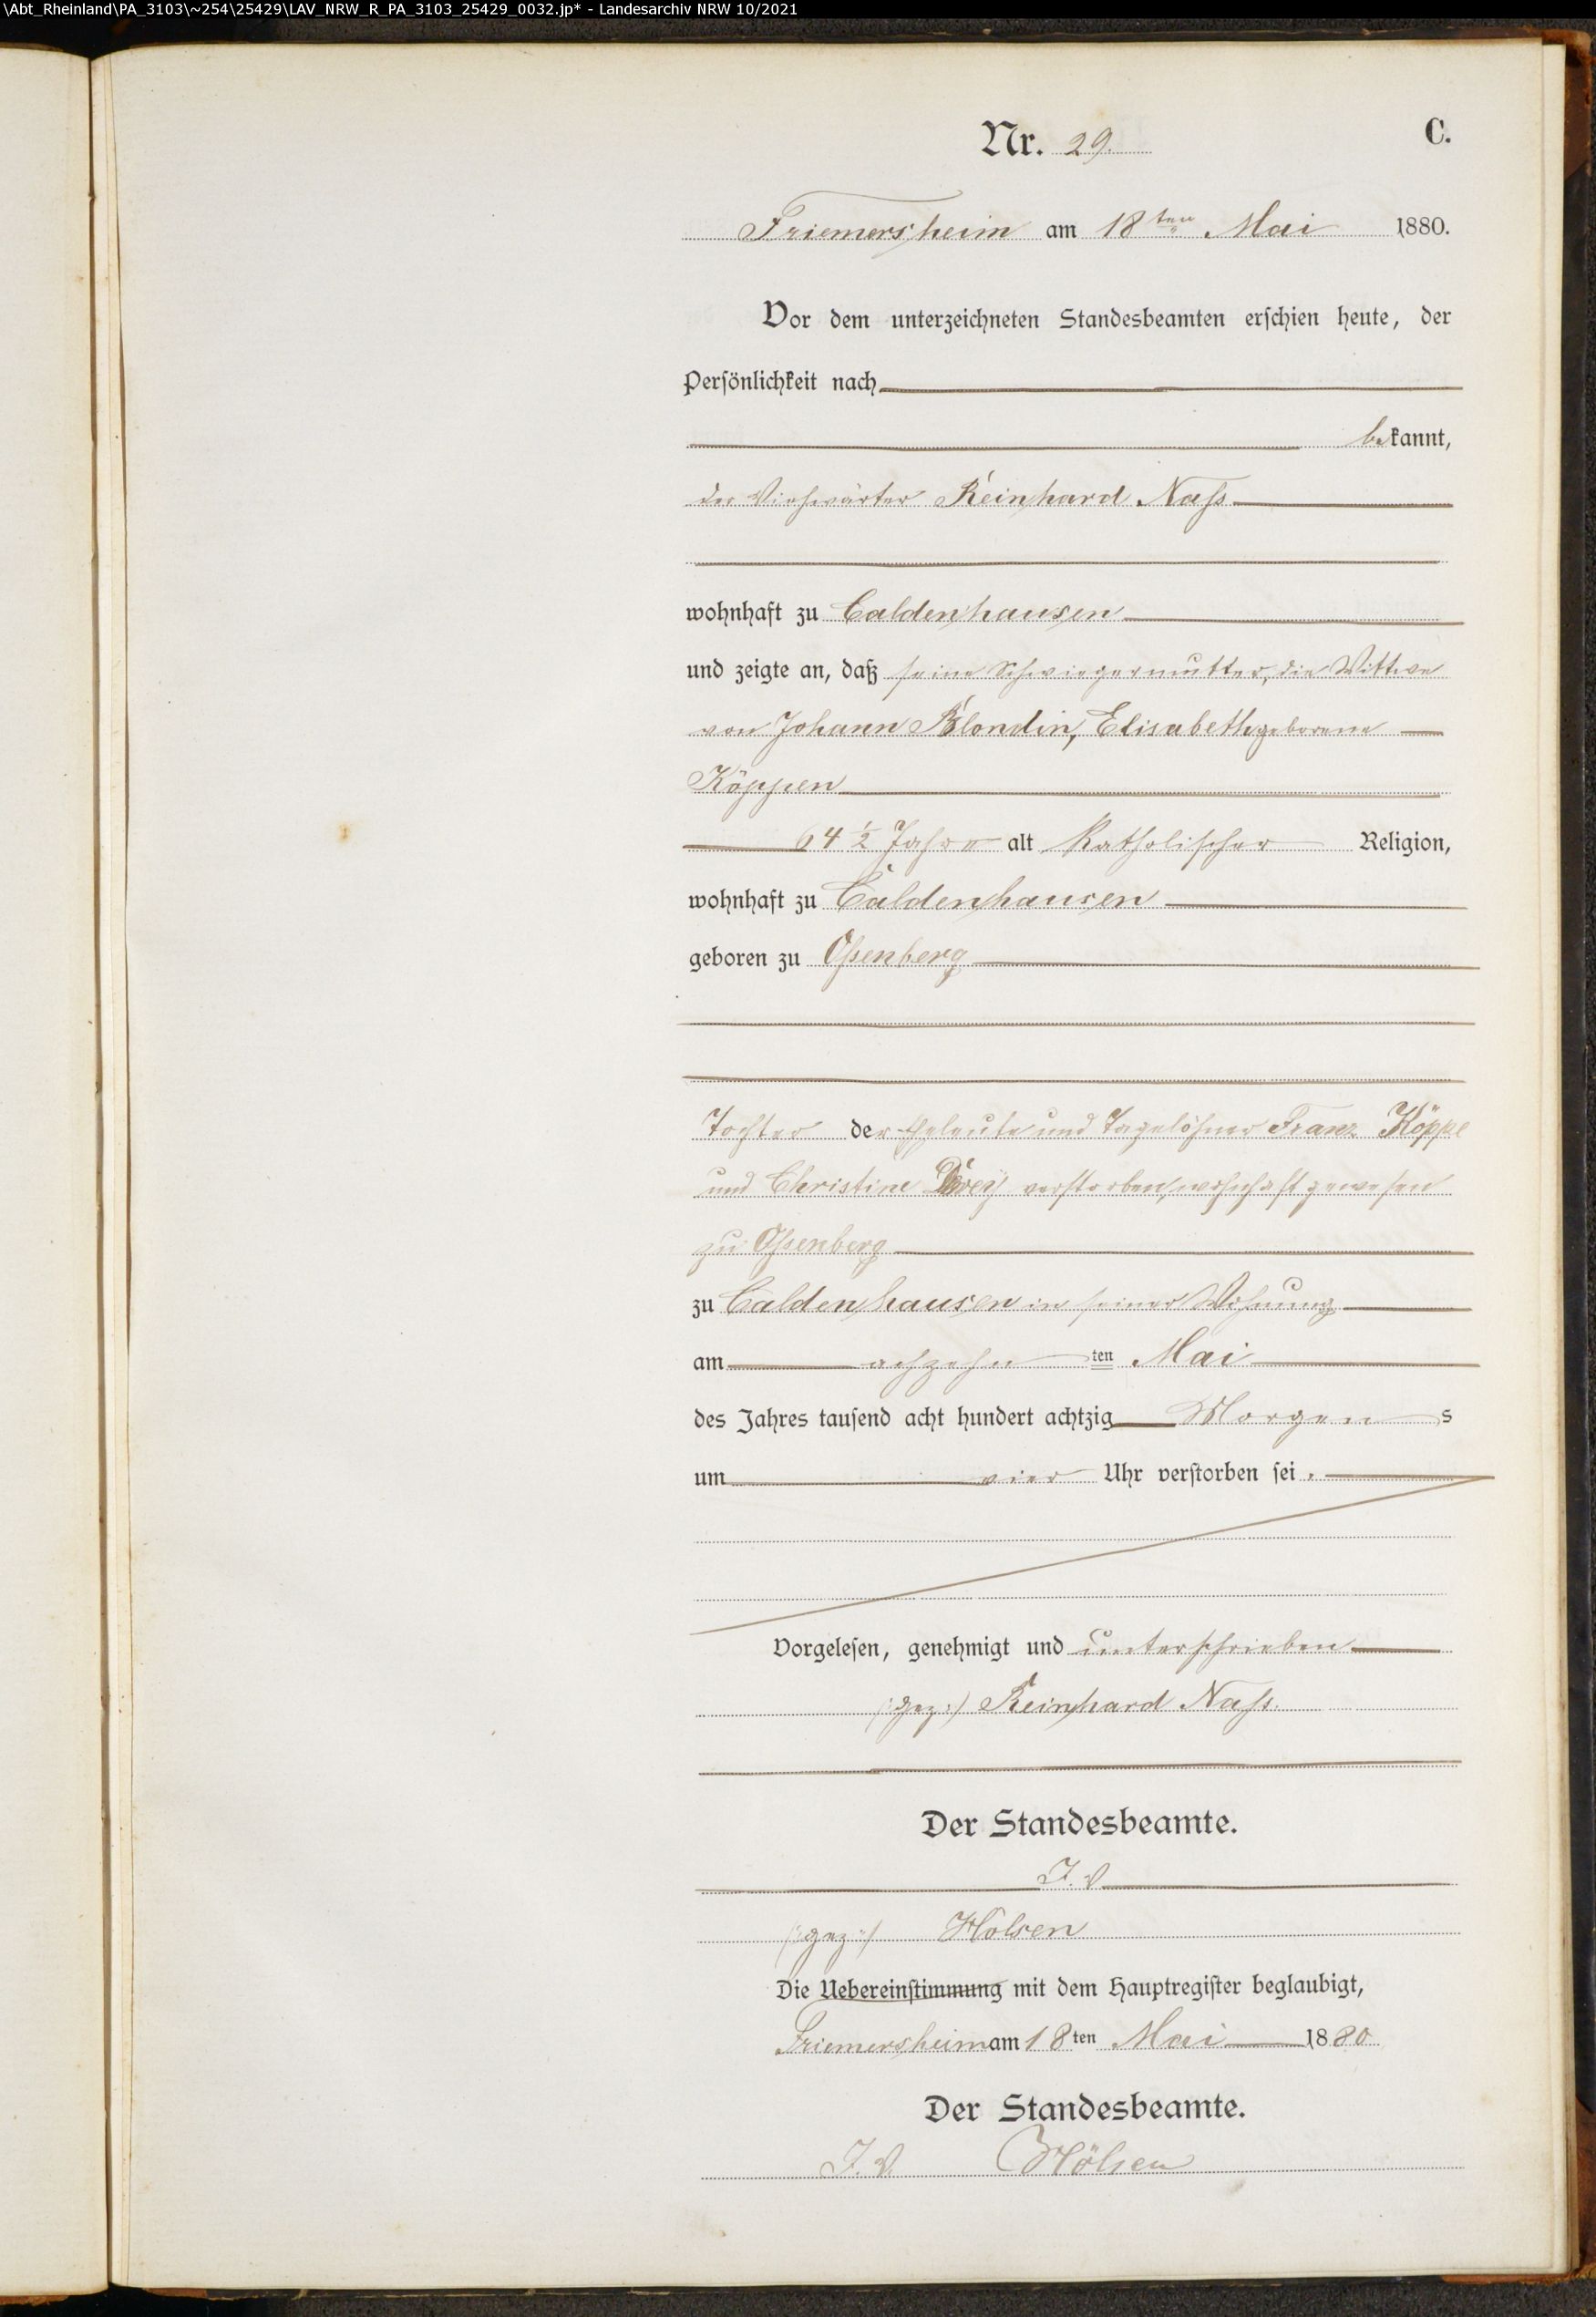 \Abt_Rheinland\PA_3103\~254\25429\LAV_NRW_R_PA_3103_25429_0032.jp* - Landesarchiv NRW 10/2021
Nr. 29. C.
Friemersheim am 18ten Mai 1880.
Vor dem unterzeichneten Standesbeamten erschien heute, der
Persönlichkeit nach
bekannt,
der Viehwärter Reinhard Nass
wohnhaft zu Caldenhausen
und zeigte an, daß seine Schwiegermutter, die Wittwe
von Johann Blondin, Elisabeth geborene
Köppen
64 1/2 Jahre alt Katholischer Religion,
wohnhaft zu Caldenhausen
geboren zu Ossenberg
Tochter der Eheleute und Tagelöhner Franz Köppe
und Christine verstorben, wohnhaft gewesen
zu Ossenberg
zu Caldenhausen in seiner Wohnung
am achzehn ten Mai
des Jahres tausend acht hundert achtzig Morgens
um vier Uhr verstorben sei.
Vorgelesen, genehmigt und unterschrieben
(:gez:) Reinhard Nass.
Der Standesbeamte.
J. V.
(:gez:) Hölsen
Die Uebereinstimmung mit dem Hauptregister beglaubigt,
Friemersheim am 18ten Mai 1880
Der Standesbeamte.
J. V. Hölsen